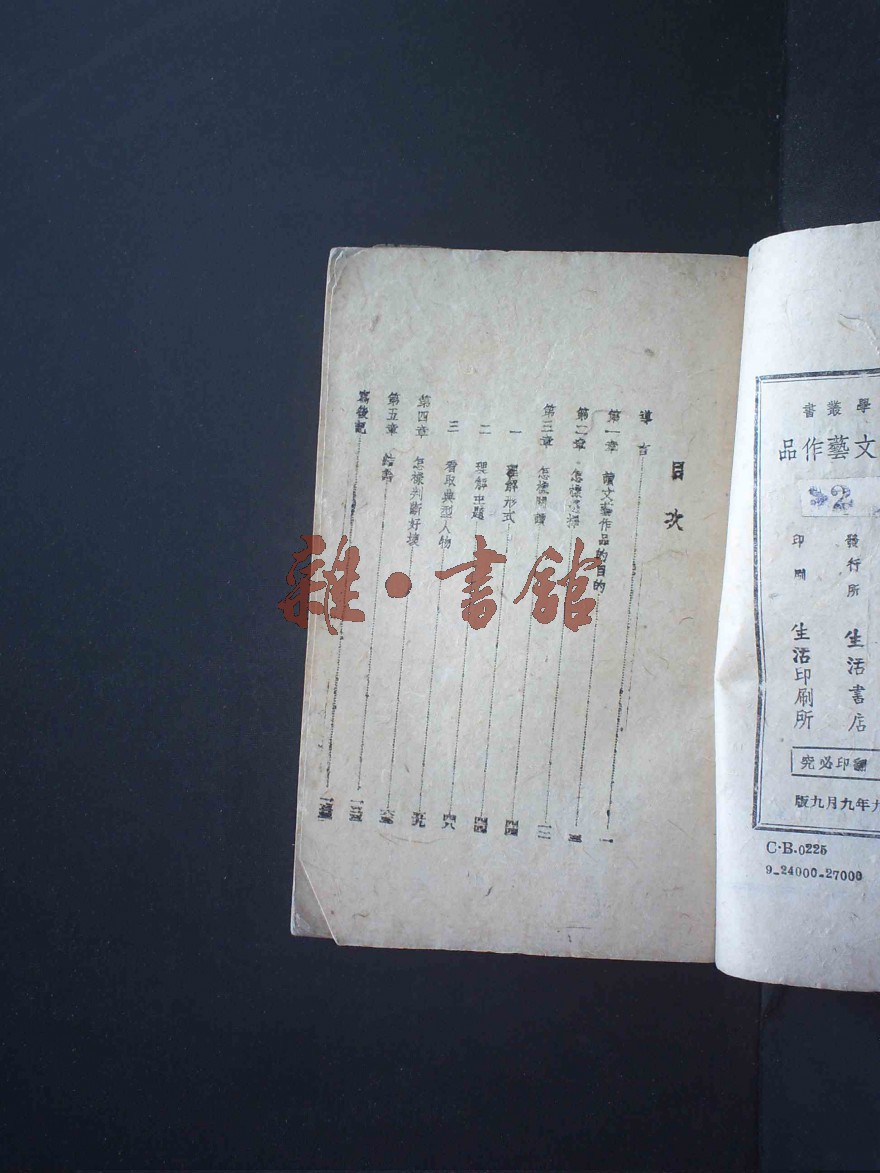 目次
導言
第一章 讀文藝作品的目的 一
第二章 怎樣選擇
第三章 怎樣閱讀
一 理解形式
二 理解主題
三 看取典型人物 四八
第四章 怎樣判斷好壞 五九
第五章 結論
寫後記
雜·書館
學叢書
文藝作品
2
發行所 生活書店
印刷 生活印刷所
翻印必究
九年九月九版
C·B.0225
9-24000-27000